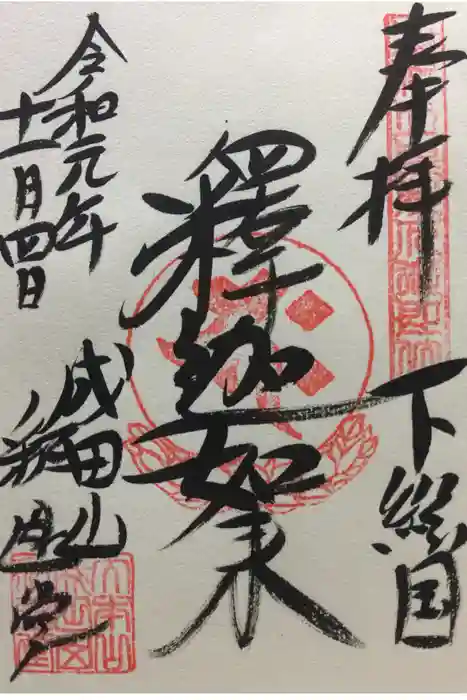 奉拝
下総国
釋迦如来
令和元年
十一月四日
成田山
釈迦堂